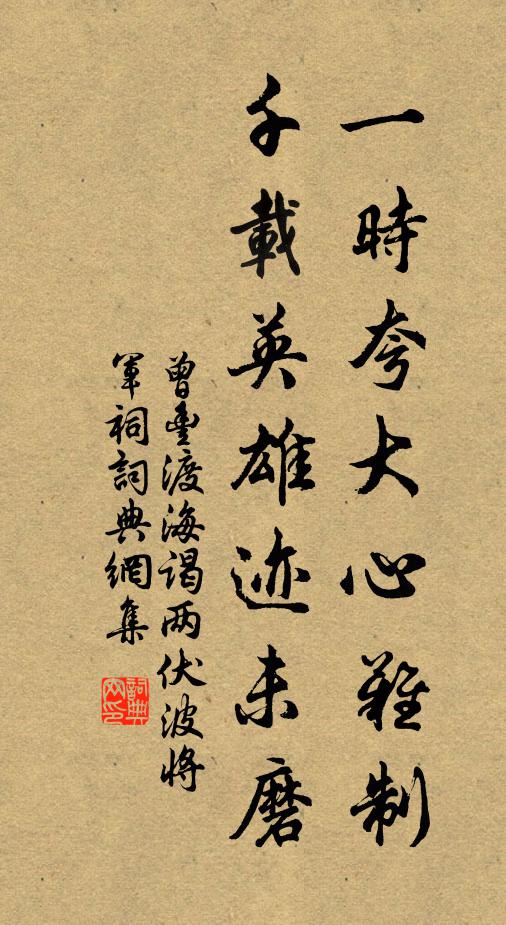 一時夸大心難制
千載英雄迹未磨
曾豐渡海谒两伏波將
軍祠詞典網集
詞典网印